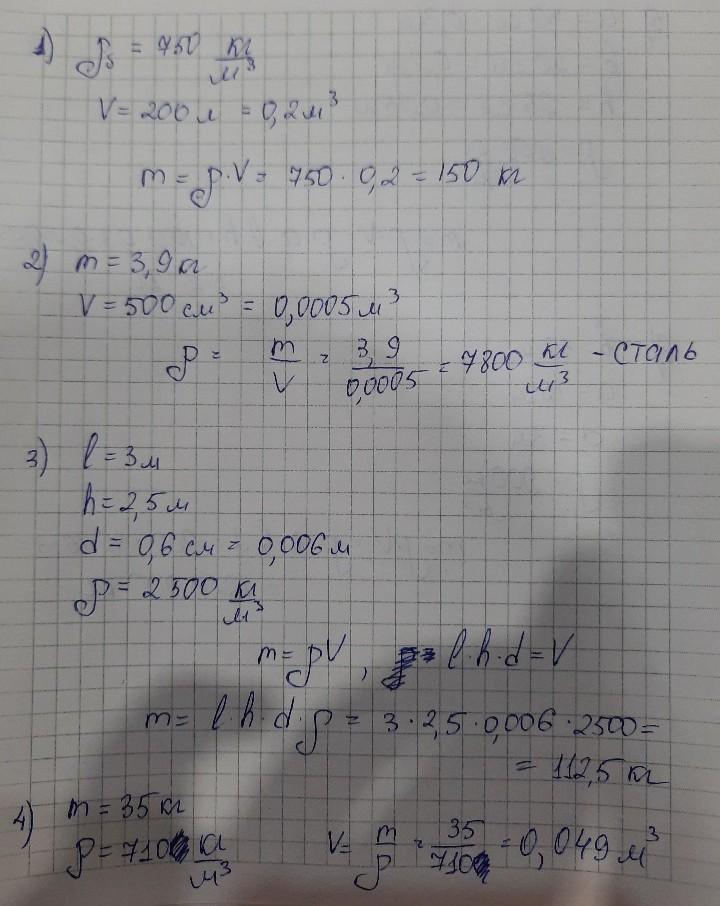 1) ρ₅ = 750 кг/м³
V = 200 л = 0,2 м³
m = ρ·V = 750 · 0,2 = 150 кг
2) m = 3,9 кг
V = 500 см³ = 0,0005 м³
ρ = m/V = 3,9/0,0005 = 7800 кг/м³ - сталь
3) l = 3 м
h = 2,5 м
d = 0,6 см = 0,006 м
ρ = 2500 кг/м³
m = ρV, l·h·d = V
m = l·h·d·ρ = 3·2,5·0,006·2500 =
= 112,5 кг
4) m = 35 кг
ρ = 710 кг/м³ V = m/ρ = 35/710 = 0,049 м³